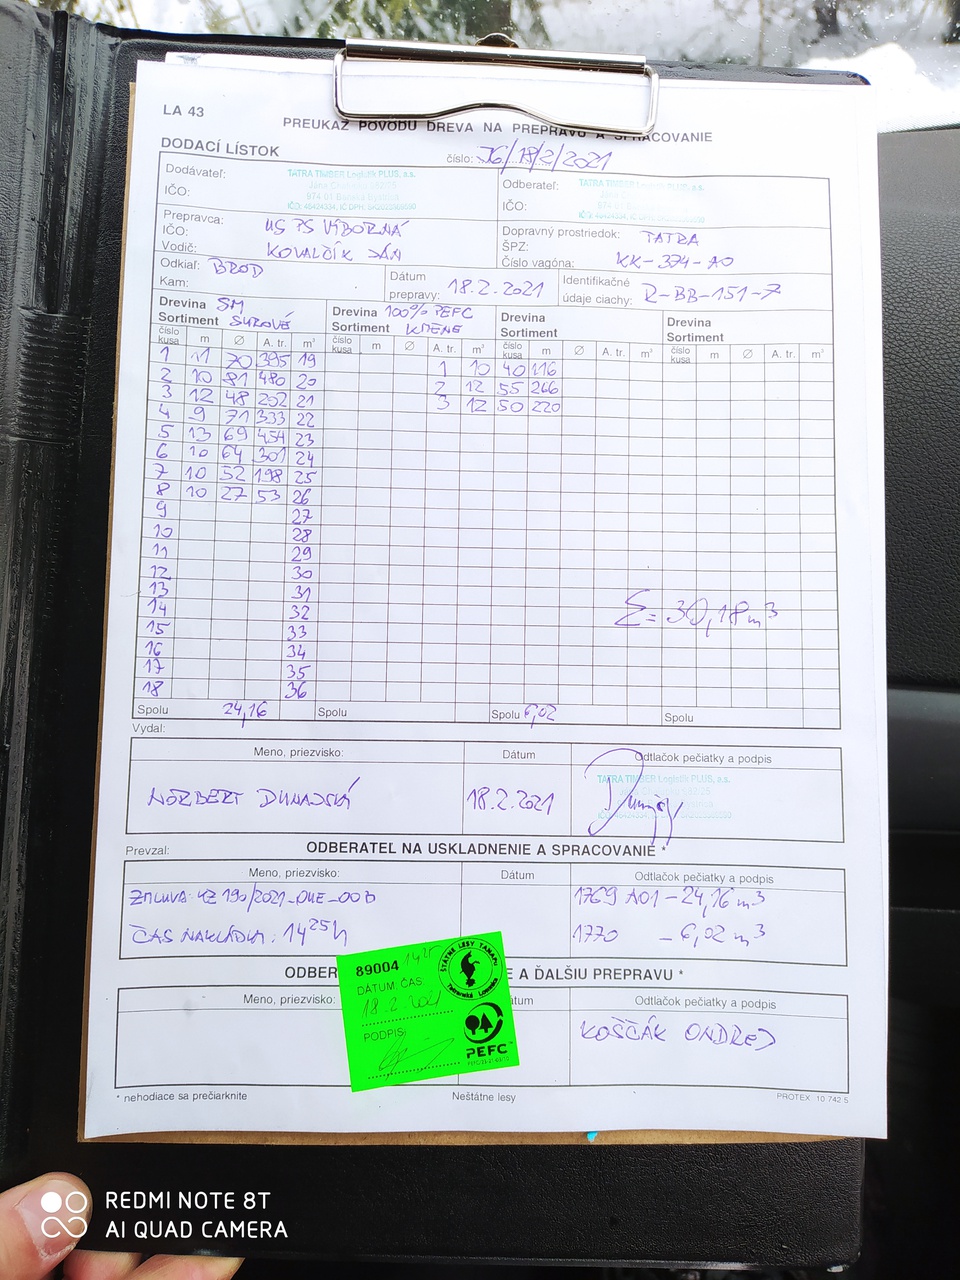 LA 43
PREUKAZ PÔVODU DREVA NA PREPRAVU A SPRACOVANIE
DODACÍ LÍSTOK
číslo: J6/18/2/2021
Dodávateľ: TATRA TIMBER Logistik PLUS, a.s.
974 01 Banská Bystrica
IČO:
Odberateľ: TATRA TIMBER Logistik PLUS, a.s.
IČO:
Prepravca: US PS VÍBORNÁ
IČO:
Vodič: KOVALČÍK JÁN
Dopravný prostriedok: TATRA
ŠPZ:
Číslo vagóna: KK-374-AO
Odkiaľ: BROD
Kam:
Dátum prepravy: 18.2.2021
Identifikačné údaje ciachy: R-BB-151-7
Drevina SM
Sortiment SUROVÉ
Drevina 100% PEFC
Sortiment KMENE
Drevina
Sortiment
Drevina
Sortiment
číslo kusa m Ø A. tr. m³ číslo kusa m Ø A. tr. m³ číslo kusa m Ø A. tr. m³ číslo kusa m Ø A. tr. m³
1 11 70 395 19 1 10 40 116
2 10 81 480 20 2 12 55 266
3 12 48 202 21 3 12 50 220
4 9 71 333 22
5 13 69 454 23
6 10 64 301 24
7 10 52 198 25
8 10 27 53 26
9 27
10 28
11 29
12 30
13 31
14 32
15 33
16 34
17 35
18 36
Σ= 30,18 m³
Spolu 24,16 Spolu Spolu 6,02 Spolu
Vydal:
Meno, priezvisko: Dátum Odtlačok pečiatky a podpis
TATRA TIMBER Logistik PLUS, a.s.
NORBERT DUNAJSKÁ 18.2.2021
Prevzal:
ODBERATEL NA USKLADNENIE A SPRACOVANIE *
Meno, priezvisko: Dátum Odtlačok pečiatky a podpis
ZMLUVA: KZ 190/2021_OUE_00D 1769 A01 - 24,16 m³
ČAS NAKLÁDKA: 14²⁵h 1770 - 6,02 m³
ODBER E A ĎALŠIU PREPRAVU *
Meno, priezvisko: átum Odtlačok pečiatky a podpis
KOŠČÁK ONDREJ
89004 14²⁵
DÁTUM: ČAS:
18.2.2021
PODPIS:
ŠTÁTNE LESY TANAPU
Tatranská Lomnica
PEFC™
* nehodiace sa prečiarknite
Neštátne lesy
PROTEX 10 742 5
REDMI NOTE 8T
AI QUAD CAMERA